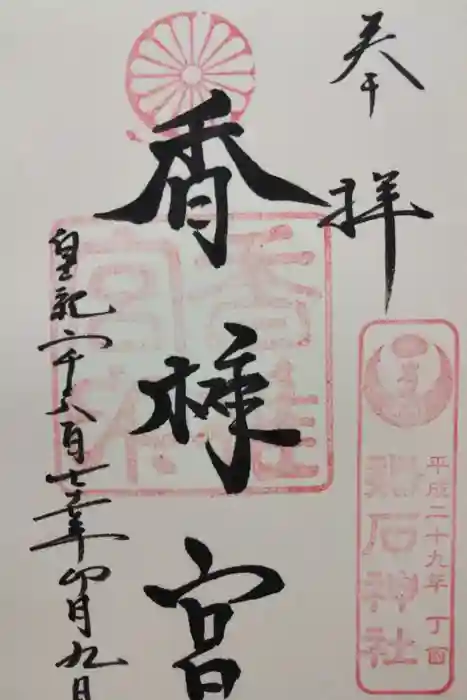 奉拝
香椎宮
皇紀二千六百七十七年卯月九日
平成二十九年 丁酉
鶏石神社